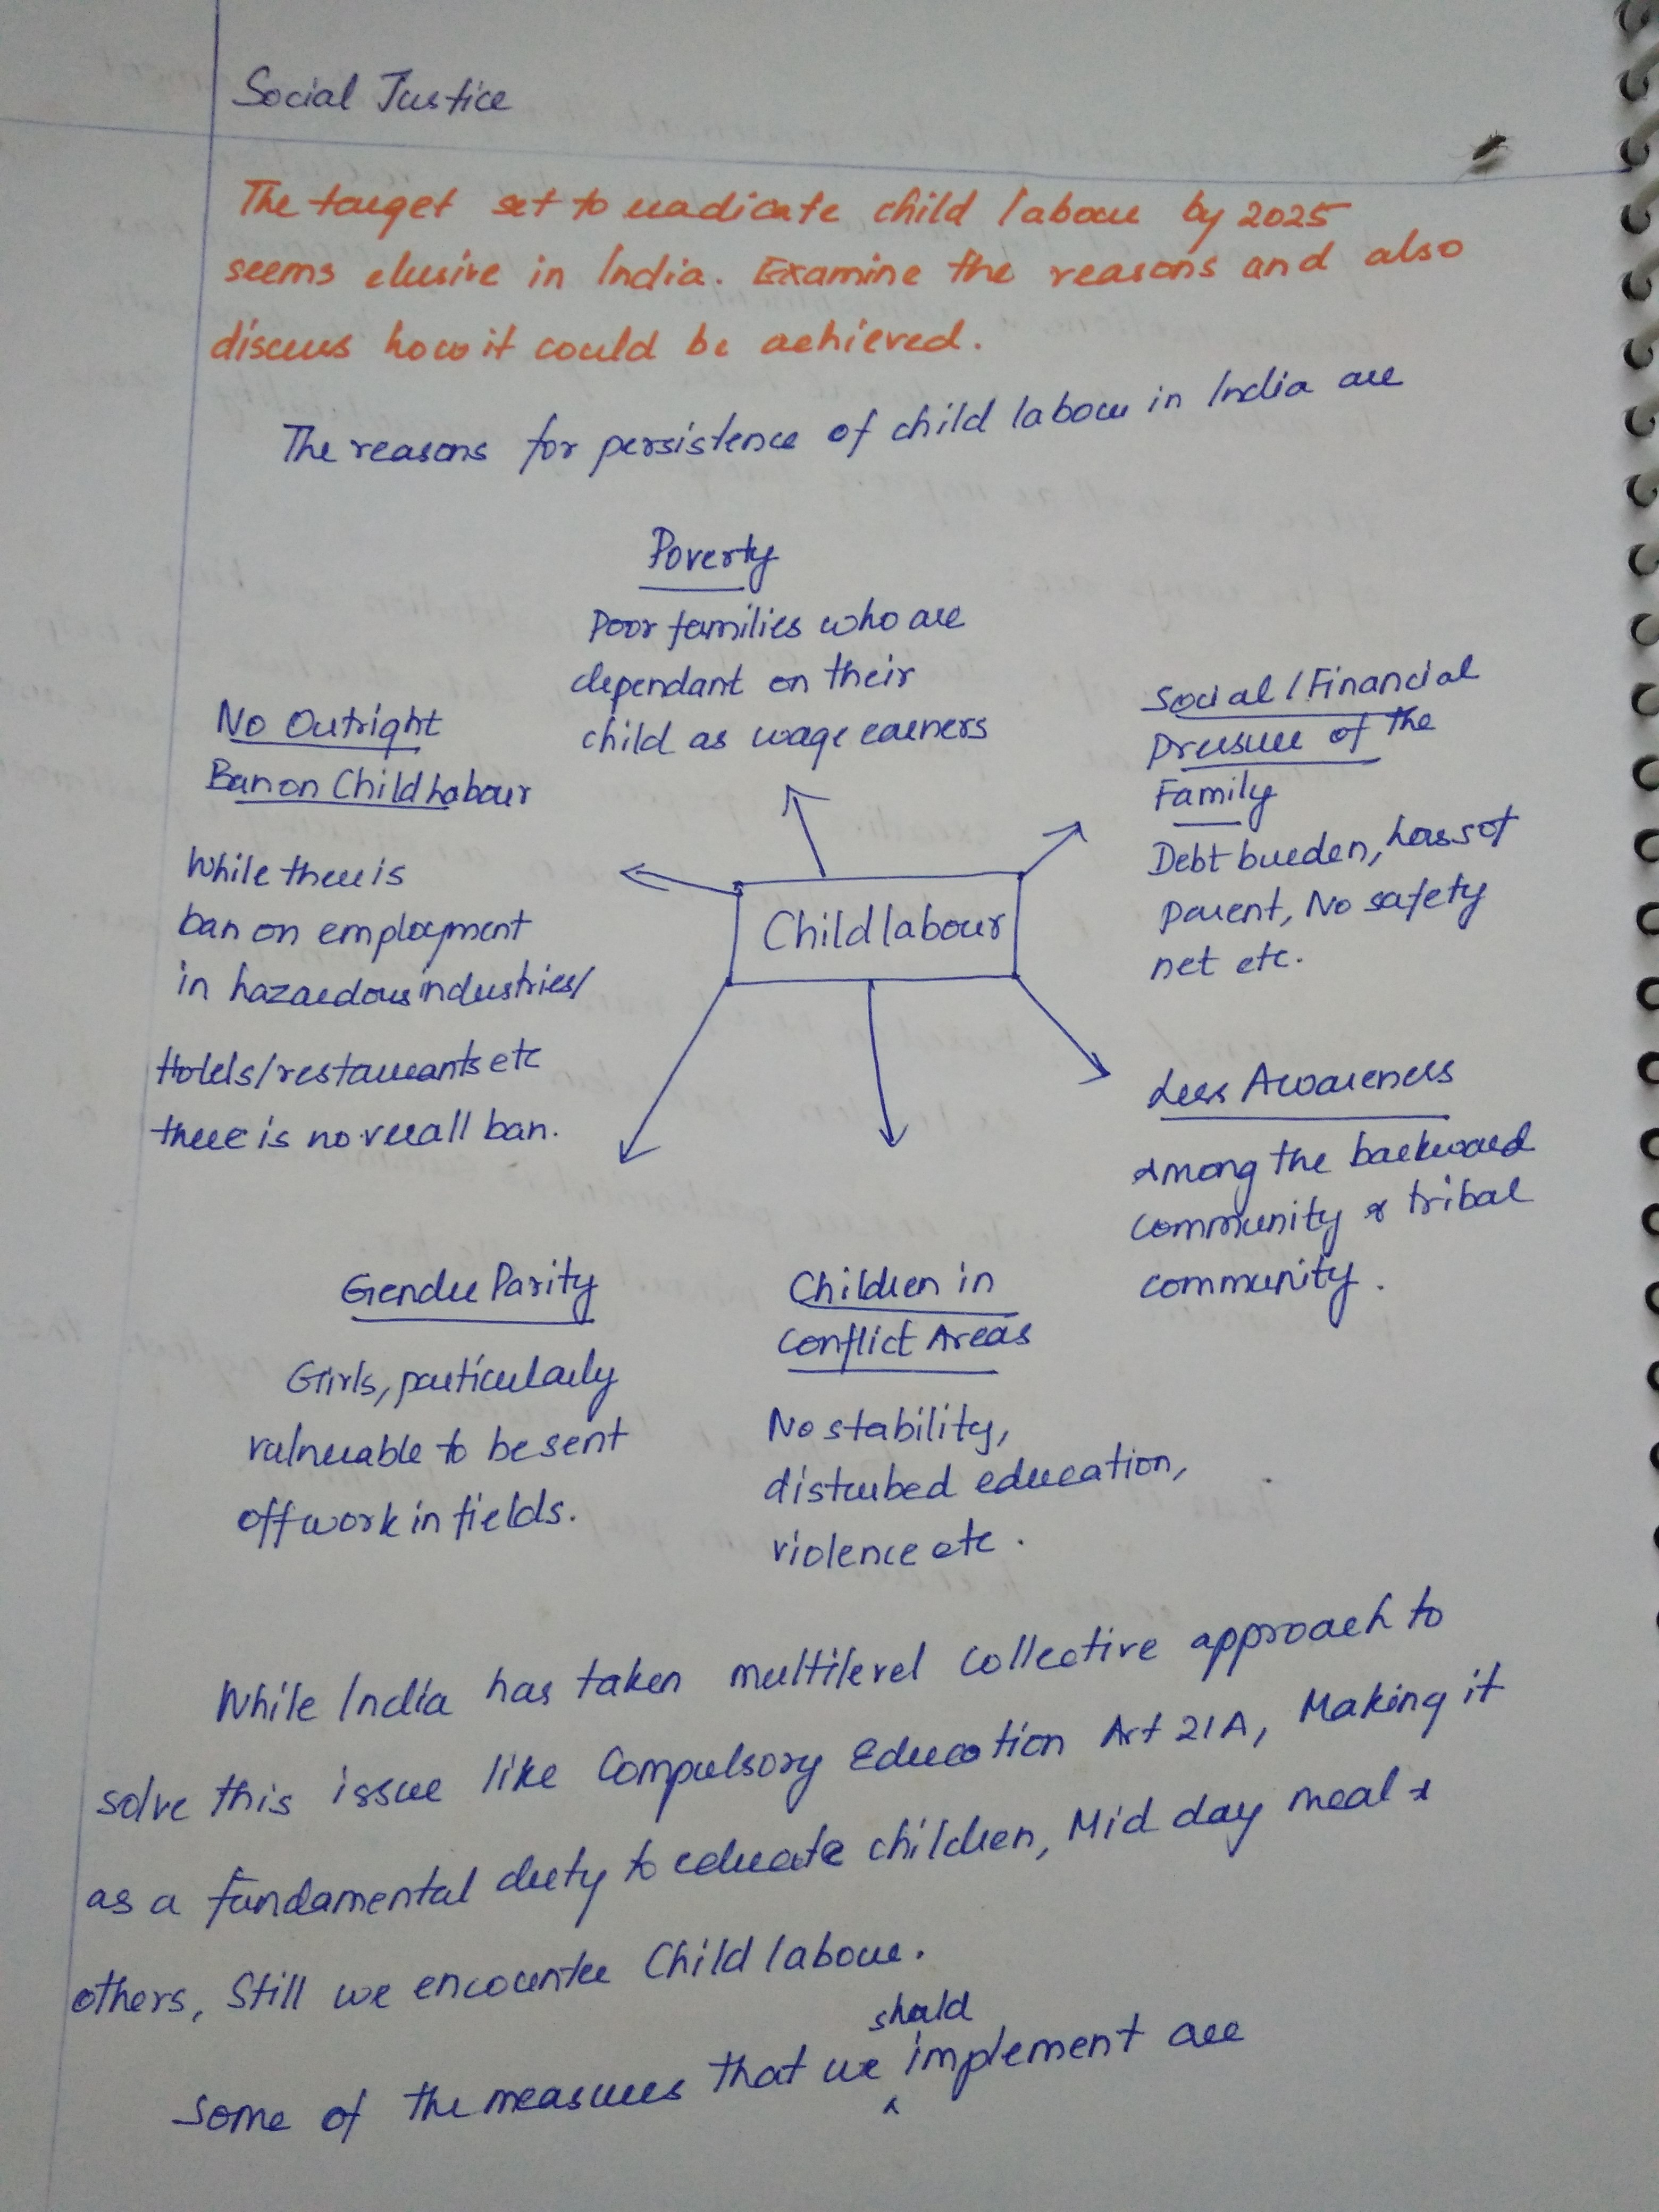 Social Justice
The target set to eradicate child labour by 2025
seems elusive in India. Examine the reasons and also
discuss how it could be achieved.
The reasons for persistence of child labour in India are
Poverty
Poor families who are
dependant on their
child as wage earners
No Outright
Ban on Child Labour
While there is
ban on employment
in hazardous industries/
Hotels/restaurants etc
there is no overall ban.
Social/Financial
Pressure of the
Family
Debt burden, Loss of
parent, No safety
net etc.
Child labour
Less Awareness
Among the backward
community & tribal
community.
Gender Parity
Girls, particularly
vulnerable to be sent
off work in fields.
Children in
Conflict Areas
No stability,
disturbed education,
violence etc.
While India has taken multilevel collective approach to
solve this issue like Compulsory Education Art 21A, Making it
as a fundamental duty to educate children, Mid day meal &
others, Still we encounter Child labour.
Some of the measures that we should implement are